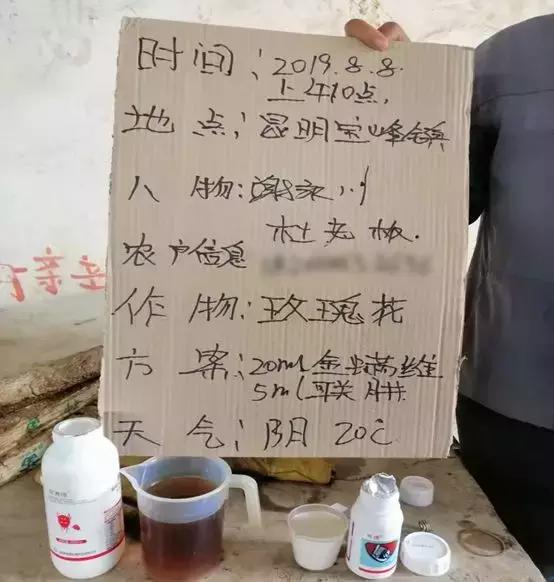 时间：2019.8.8.
上午10点,
地点：昆明宝峰镇
人物：谢家川
杜老板.
农户信息
作物：玫瑰花
方案：20ml金满维
5ml联肼
天气：阴 20℃